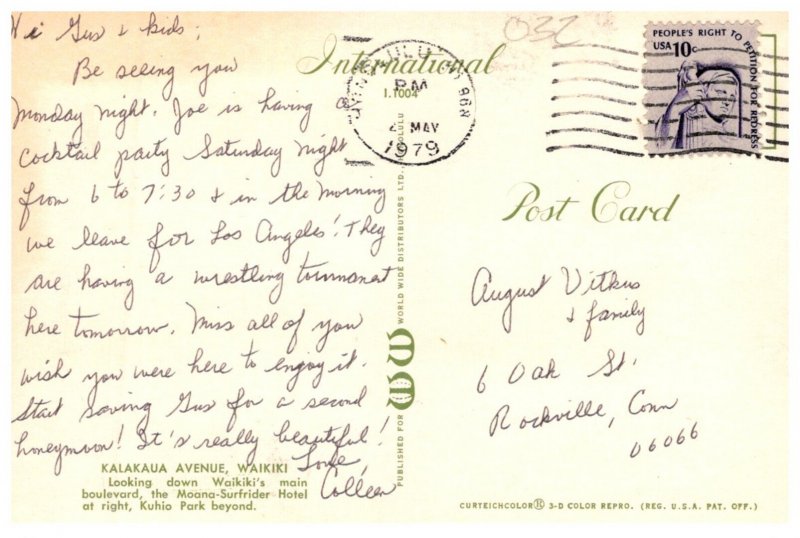 Hi Gus & kids,
Be seeing you
Monday night. Joe is having a
cocktail party Saturday night
from 6 to 7:30 & in the morning
we leave for Los Angeles! They
are having a wrestling tournament
here tomorrow. Miss all of you
wish you were here to enjoy it.
Start saving Gus for a second
honeymoon! It's really beautiful!
Love,
Colleen
KALAKAUA AVENUE, WAIKIKI
Looking down Waikiki's main
boulevard, the Moana-Surfrider Hotel
at right, Kuhio Park beyond.
International
I.1004
PUBLISHED FOR WORLD WIDE DISTRIBUTORS LTD., HONOLULU
WW
Post Card
032
PM
MAY
1979
968
PEOPLE'S RIGHT TO PETITION FOR REDRESS
USA 10c
August Vitkus
& family
6 Oak St.
Rockville, Conn
06066
CURTEICHCOLOR® 3-D COLOR REPRO. (REG. U.S.A. PAT. OFF.)